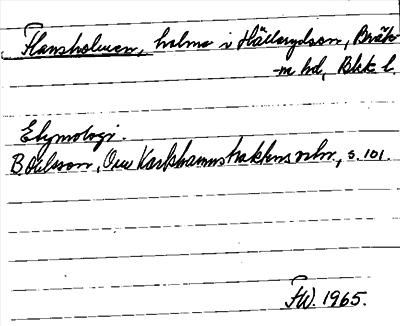 Flansholmen, holme i Hällarydsån, Bräk-
ne hd, Blek. l.
Etymologi.
B Ohlsson, Om Karlshamnstraktens nhr., s. 101.
FW. 1965.